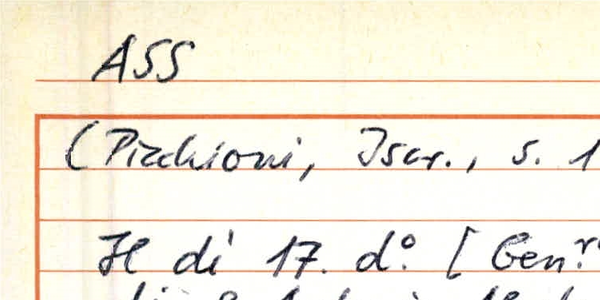 ASS
(Picchioni, Iscr., s. 1
Il di 17. d.° [Gen.ro